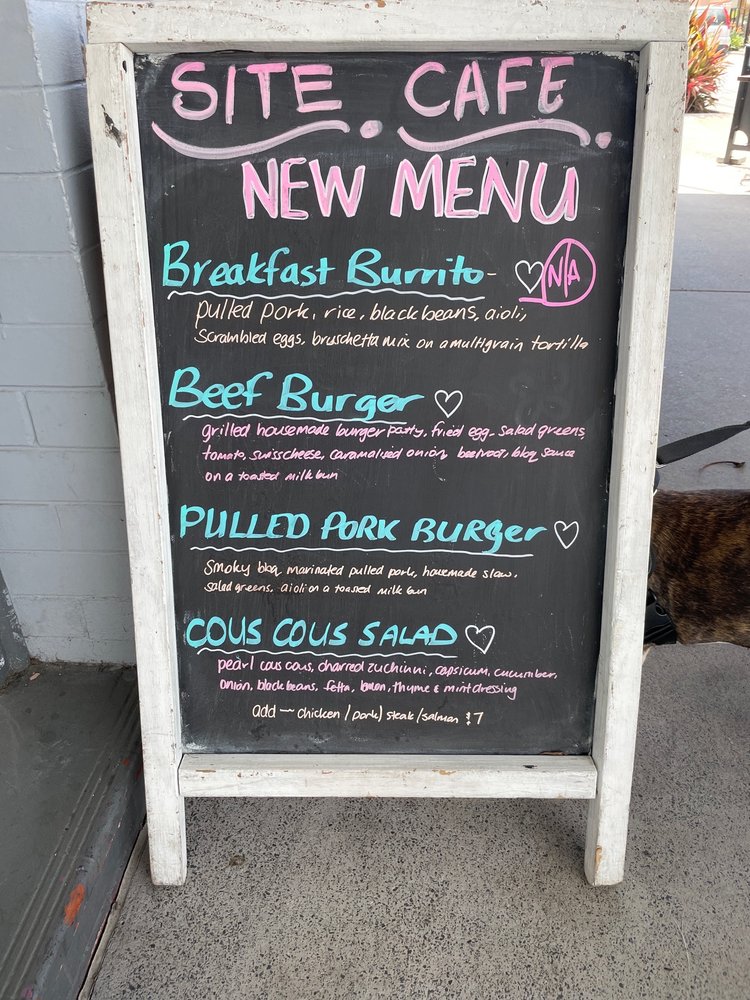 SITE CAFE
NEW MENU
Breakfast Burrito- N/A
pulled pork, rice, black beans, aioli,
Scrambled eggs, bruschetta mix on a multigrain tortilla
Beef Burger
grilled housemade burger patty, fried egg, salad greens,
tomato, swiss cheese, caramalised onion, beetroot, bbq sauce
on a toasted milk bun
PULLED PORK BURGER
Smoky bbq marinated pulled pork, housemade slaw,
salad greens, aioli on a toasted milk bun
COUS COUS SALAD
pearl cous cous, charred zuchinni, capsicum, cucumber,
onion, black beans, fetta, lemon, thyme & mint dressing
add — chicken / pork / steak / salmon $7